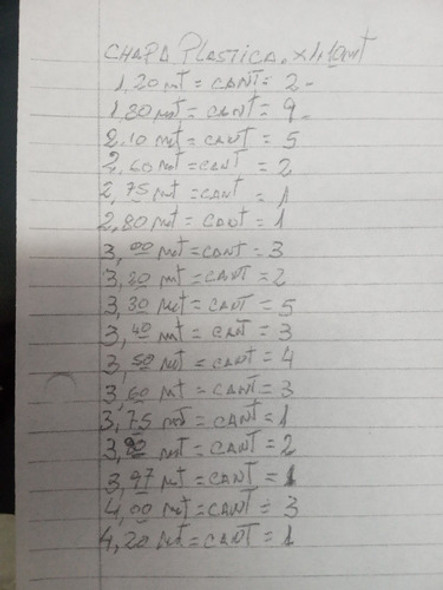 CHAPA PLASTICA. x 1,10mt
1,20 mt = CANT = 2 -
1,80 mt = CANT = 9 -
2,10 mt = CANT = 5
2,60 mt = CANT = 2
2,75 mt = CANT = 1
2,80 mt = CANT = 1
3,00 mt = CANT = 3
3,20 mt = CANT = 2
3,30 mt = CANT = 5
3,40 mt = CANT = 3
3,50 mt = CANT = 4
3,60 mt = CANT = 3
3,75 mt = CANT = 1
3,80 mt = CANT = 2
3,97 mt = CANT = 1
4,00 mt = CANT = 3
4,20 mt = CANT = 1